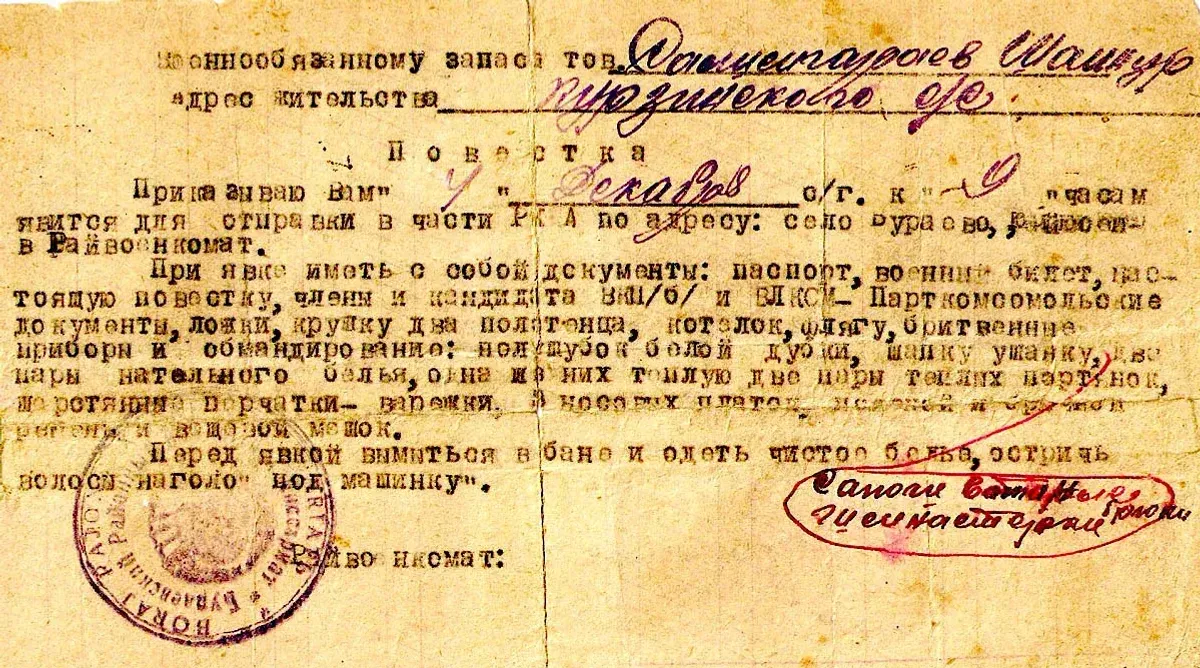 Военнообязанному запаса тов. Шакур
адрес жительства Курзинского с/с.
Повестка
Приказываю Вам" 4 " Декабря с/г. к "-9 "часам
явится для отправки в части РККА по адресу: село Бураево,
в Райвоенкомат.
При явке иметь с собой документы: паспорт, военный билет, нас-
тоящую повестку, члены и кандидата ВКП/б/ и ВЛКСМ- Парткомсомольские
документы, ложки, кружку два полотенца, котелок, флягу, бритвенные
приборы и обмандирование: полушубок белой дубки, шапку ушанку, две
пары нательного белья, одна из них теплую две пары теплих партянок,
шерстянные перчатки- варежки. 3 носовых платок, поясной и брючной
ремень и вещевой мешок.
Перед явкой вымыться в бане и одеть чистое белье, остричь
волосы наголо" под машинку".
Сапоги брюки
Райвоенкомат:
BORAJ RAJO
Бураевский Рай